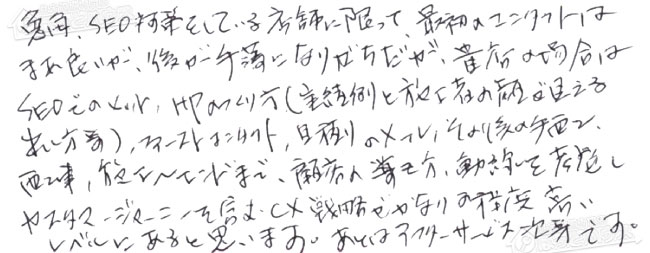 兎角、SEO対策をしている店舗に限って、最初のコンタクトは
まあ良いが、後が手薄になりがちだが、貴店の場合は
SEOそのもの、HPのつくり方(実績例と施工者の顔が見える
出し方等)、ファーストコンタクト、見積りのメール、その後の手配、
配車、施工、エンドまで、顧客の導き方、動線を考慮し
カスタマージャーニーを含むCX戦略がかなりの程度高い
レベルにあると思います。あとはアフターサービス次第です。